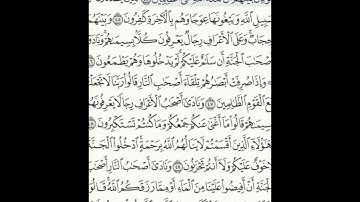 سَبِيلِ ٱللَّهِ وَيَبْغُونَهَا عِوَجًا وَهُم بِٱلْأَخِرَةِ كَٰفِرُونَ ٤٥ وَبَيْنَهُمَا
حِجَابٌ وَعَلَى ٱلْأَعْرَافِ رِجَالٌ يَعْرِفُونَ كُلًّۢا بِسِيمَىٰهُمْ وَنَادَوْا۟
أَصْحَٰبَ ٱلْجَنَّةِ أَن سَلَٰمٌ عَلَيْكُمْ لَمْ يَدْخُلُوهَا وَهُمْ يَطْمَعُونَ
وَإِذَا صُرِفَتْ أَبْصَٰرُهُمْ تِلْقَآءَ أَصْحَٰبِ ٱلنَّارِ قَالُوا۟ رَبَّنَا لَا تَجْعَلْنَا
مَعَ ٱلْقَوْمِ ٱلظَّٰلِمِينَ ٤٧ وَنَادَىٰٓ أَصْحَٰبُ ٱلْأَعْرَافِ رِجَالًا يَعْرِفُونَهُم
بِسِيمَىٰهُمْ قَالُوا۟ مَآ أَغْنَىٰ عَنكُمْ جَمْعُكُمْ وَمَا كُنتُمْ تَسْتَكْبِرُونَ ٤٨
أَهَٰٓؤُلَآءِ ٱلَّذِينَ أَقْسَمْتُمْ لَا يَنَالُهُمُ ٱللَّهُ بِرَحْمَةٍ ٱدْخُلُوا۟ ٱلْجَنَّةَ
لَا خَوْفٌ عَلَيْكُمْ وَلَآ أَنتُمْ تَحْزَنُونَ ٤٩ وَنَادَىٰٓ أَصْحَٰبُ ٱلنَّارِ أَصْحَٰبَ
ٱلْجَنَّةِ أَنْ أَفِيضُوا۟ عَلَيْنَا مِنَ ٱلْمَآءِ أَوْ مِمَّا رَزَقَكُمُ ٱللَّهُ قَالُوٓا۟